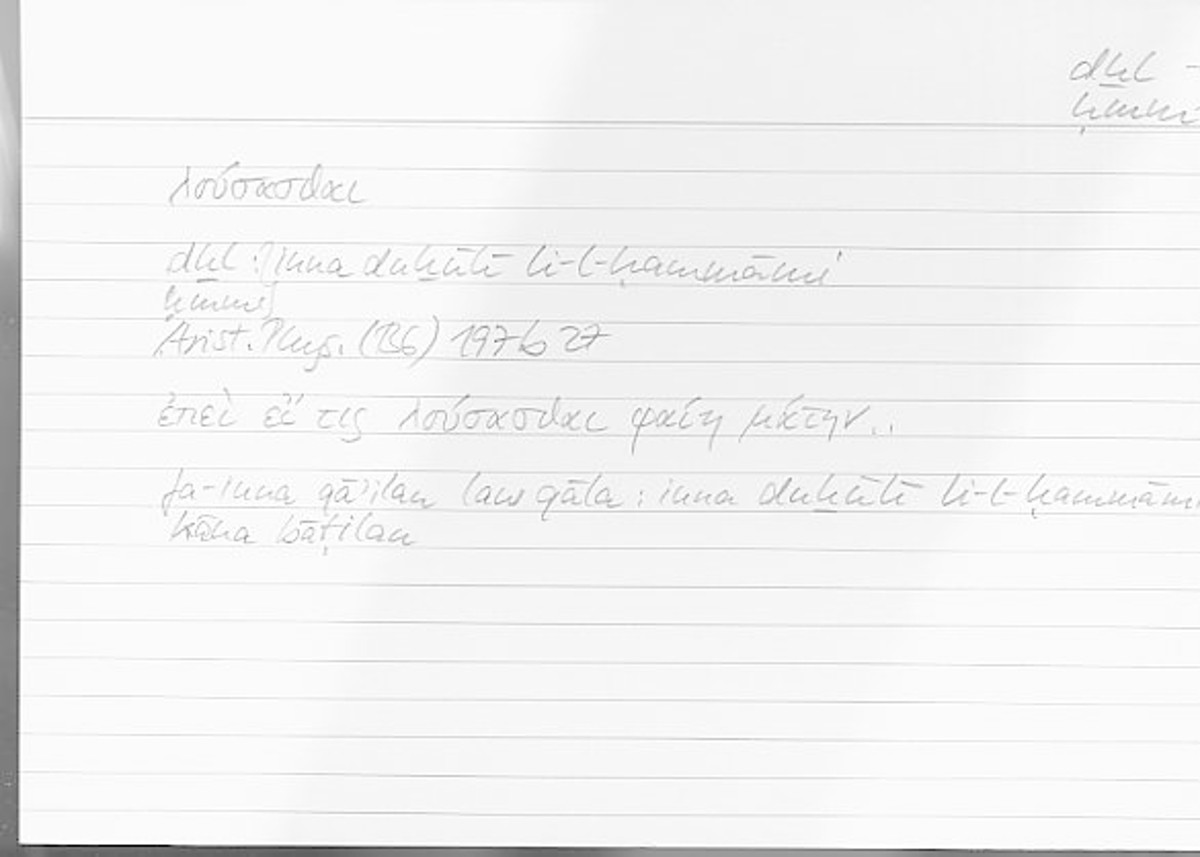 dḫl -
ḥmm
λούσασθαι
dḫl : inna duḫūlī li-l-ḥammāmi
ḥmm
Arist. Phys. (B6) 197b 27
ἐπεὶ εἴ τις λούσασθαι φαίη μάτην..
fa-inna qāʾilan law qāla : inna duḫūlī li-l-ḥammām
kāna bāṭilan